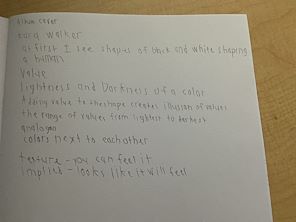 Album cover
cara walker
at first I see shapes of black and white shaping
a human
value
lightness and Darkness of a color
Adding value to the shape creates illusion of values
the range of values from lightest to darkest
analogan
colors next to each other
texture - you can feel it
implied - looks like it will feel